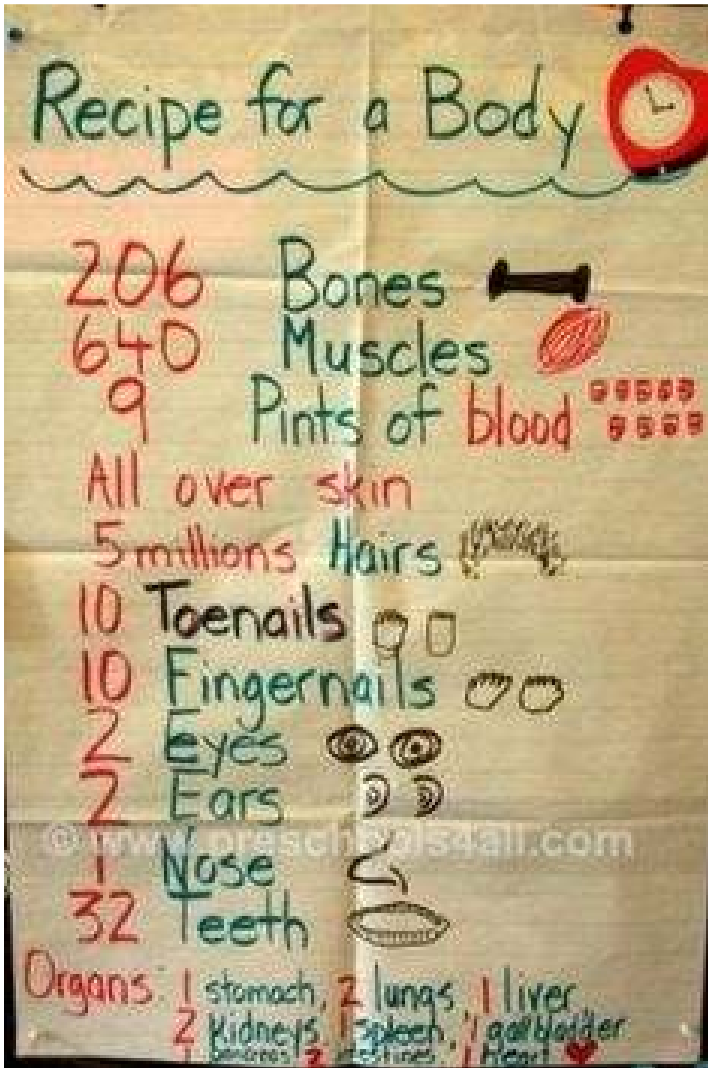 Recipe for a Body
206 Bones
640 Muscles
9 Pints of blood
All over skin
5 millions Hairs
10 Toenails
10 Fingernails
2 Eyes
2 Ears
© www.preschools4all.com
1 Nose
32 Teeth
Organs: 1 stomach, 2 lungs, 1 liver,
2 Kidneys, 1 spleen, 1 gallbladder
1 pancreas, 2 intestines, 1 heart